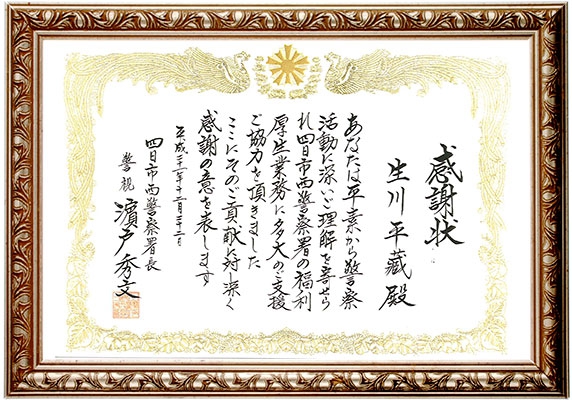 感謝状
生川平蔵殿
あなたは平素から警察
活動に深いご理解を寄せら
れ四日市西警察署の福利
厚生業務に多大のご支援
ご協力を頂きました
ここにそのご貢献に対し深く
感謝の意を表します
平成二十二年十二月二十二日
四日市西警察署長
警視 濵戸秀文